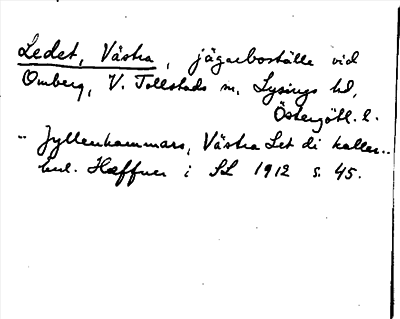 Ledet, Västra, jägarboställe vid
Omberg, V. Tollstads sn, Lysings hd,
Östergötl. l.
" Gyllenhammars, Västra Let di kallar..
enl. Haffner i SL 1912 s. 45.